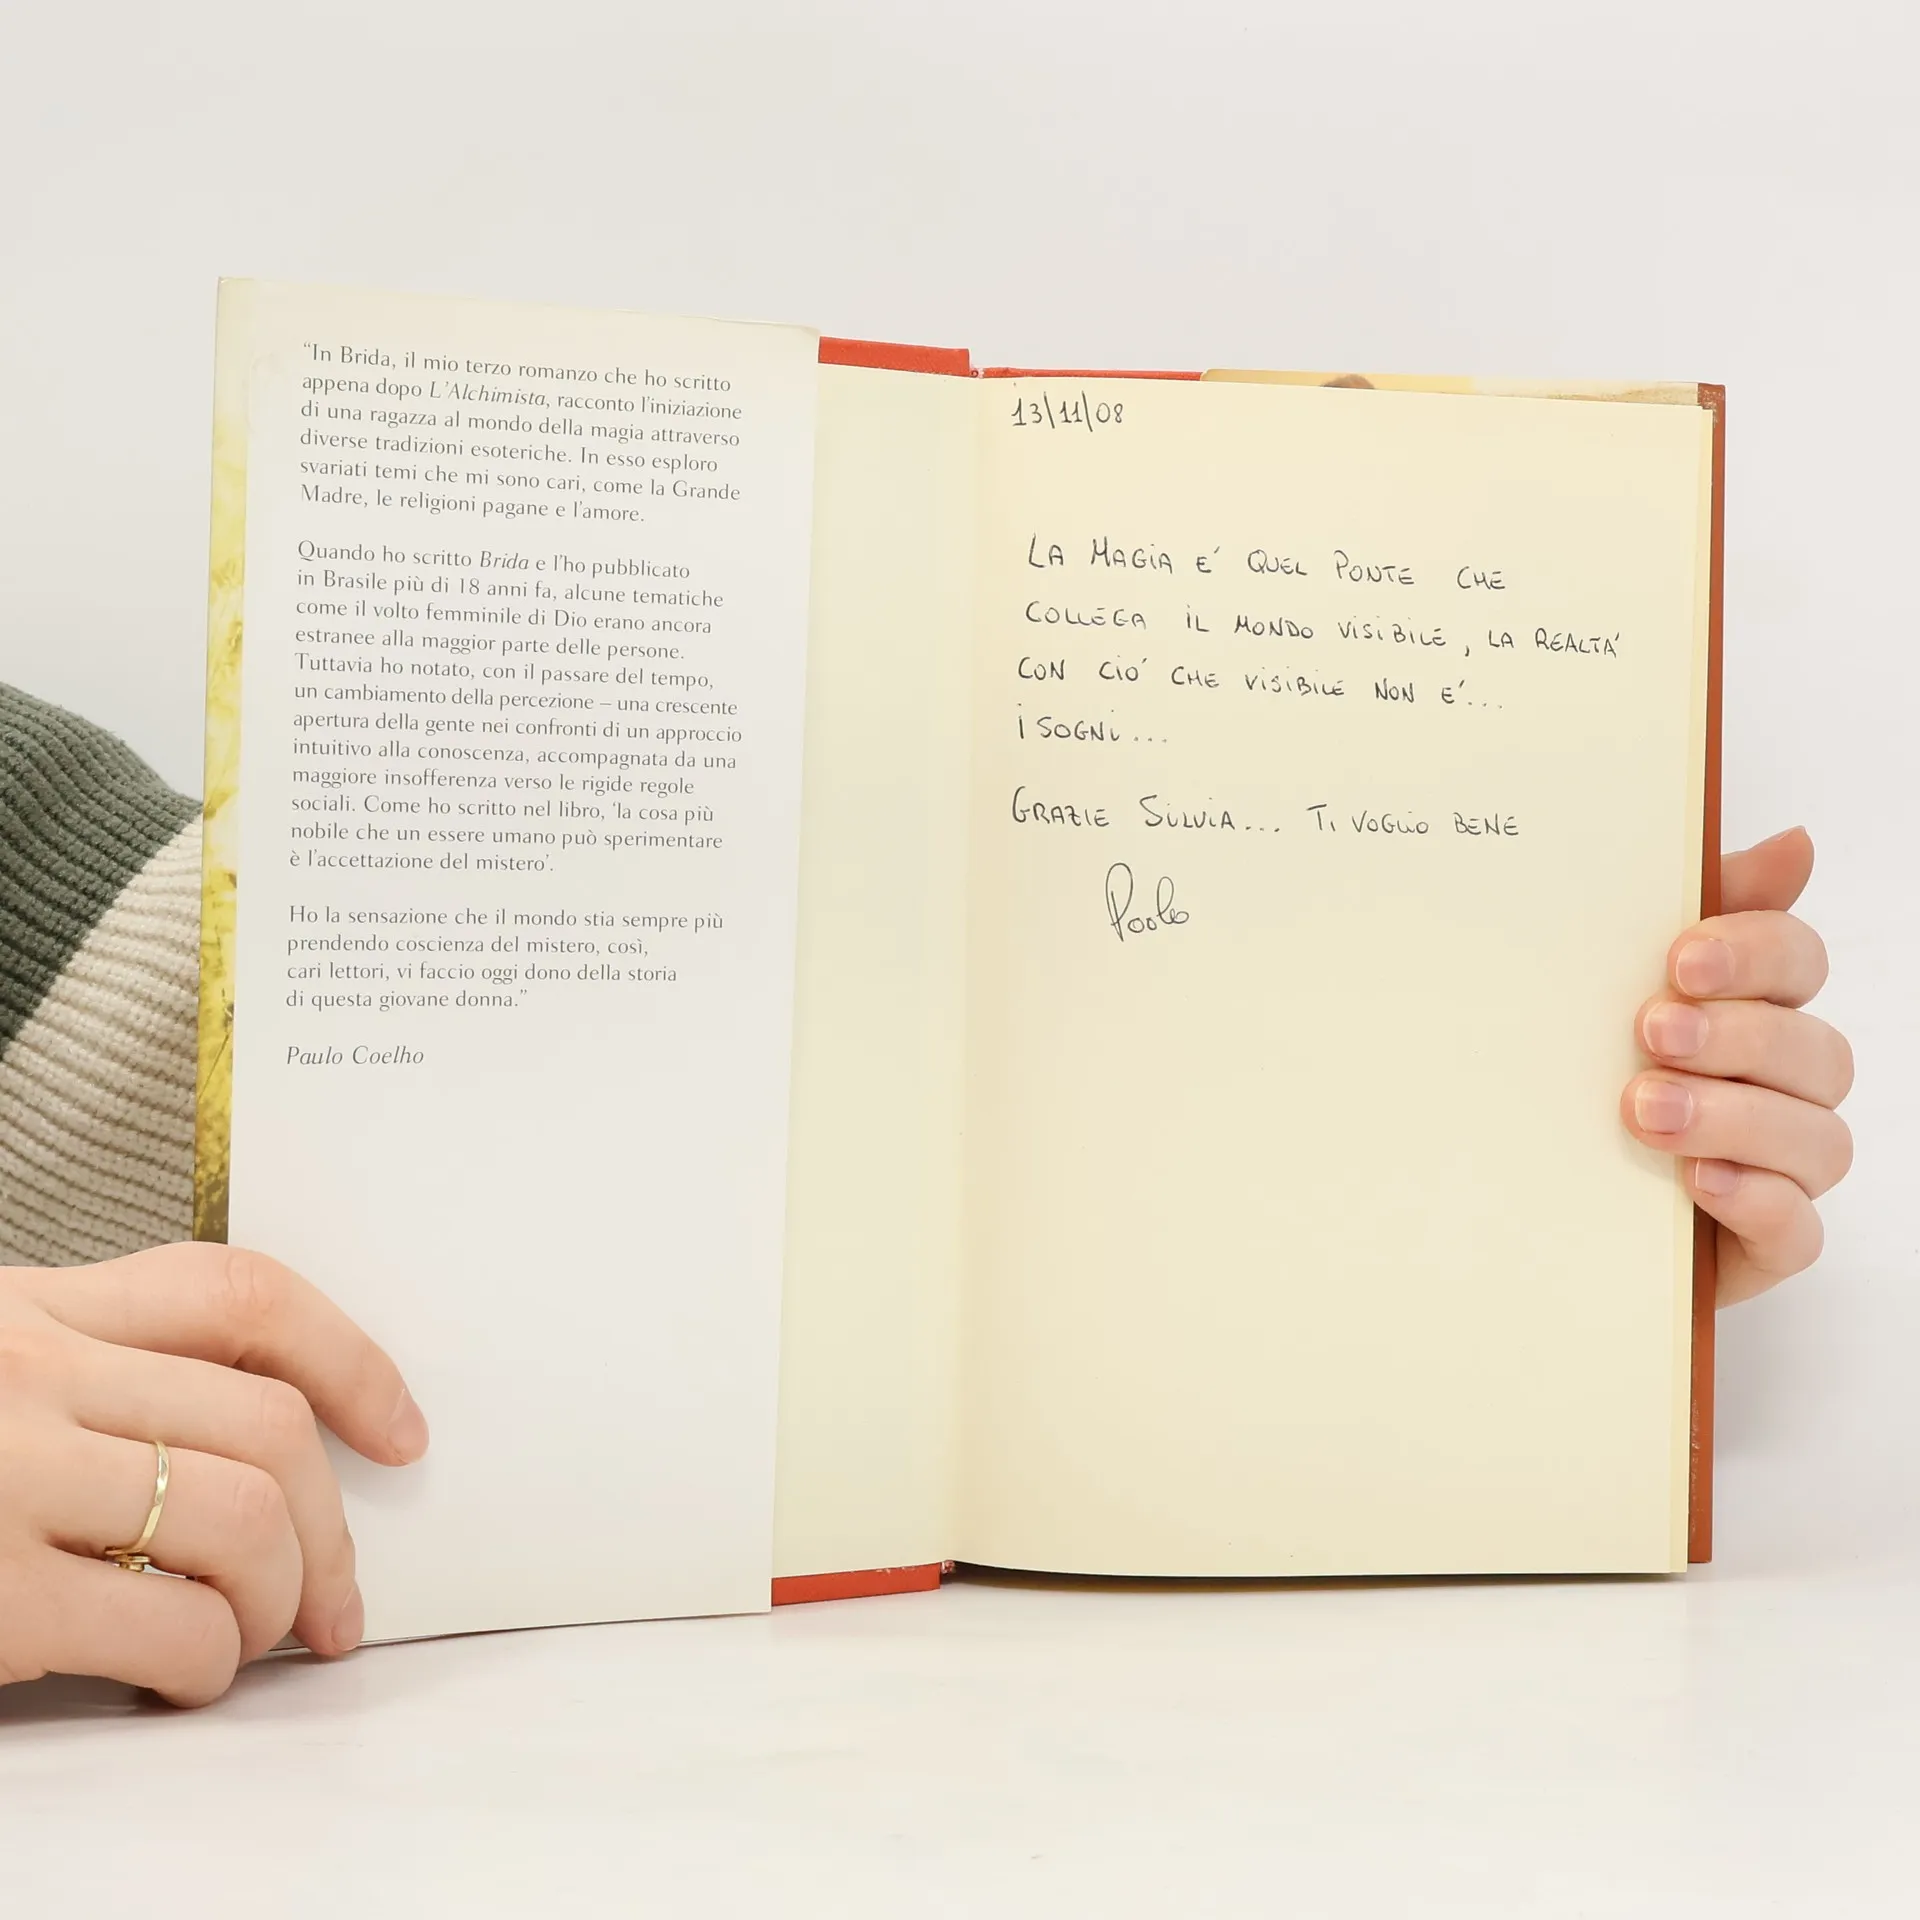 “In Brida, il mio terzo romanzo che ho scritto
appena dopo L’Alchimista, racconto l’iniziazione
di una ragazza al mondo della magia attraverso
diverse tradizioni esoteriche. In esso esploro
svariati temi che mi sono cari, come la Grande
Madre, le religioni pagane e l’amore.
Quando ho scritto Brida e l’ho pubblicato
in Brasile più di 18 anni fa, alcune tematiche
come il volto femminile di Dio erano ancora
estranee alla maggior parte delle persone.
Tuttavia ho notato, con il passare del tempo,
un cambiamento della percezione – una crescente
apertura della gente nei confronti di un approccio
intuitivo alla conoscenza, accompagnata da una
maggiore insofferenza verso le rigide regole
sociali. Come ho scritto nel libro, ‘la cosa più
nobile che un essere umano può sperimentare
è l’accettazione del mistero’.
Ho la sensazione che il mondo stia sempre più
prendendo coscienza del mistero, così,
cari lettori, vi faccio oggi dono della storia
di questa giovane donna.”
Paulo Coelho
13\11/08
LA MAGIA E' QUEL PONTE CHE
COLLEGA IL MONDO VISIBILE, LA REALTA'
CON CIO' CHE VISIBILE NON E'...
I SOGNI...
GRAZIE SILVIA... TI VOGLIO BENE
Paolo